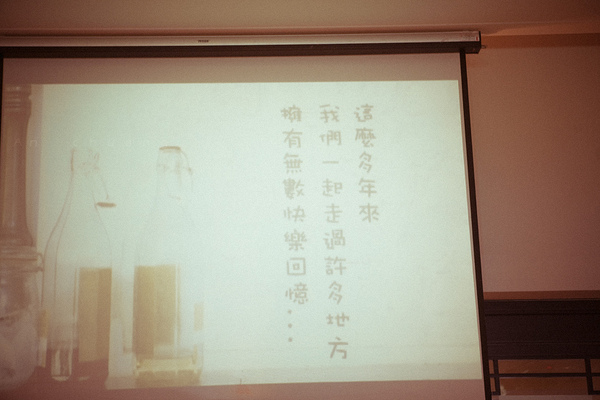 這麼多年來
我們一起走過許多地方
擁有無數快樂回憶...